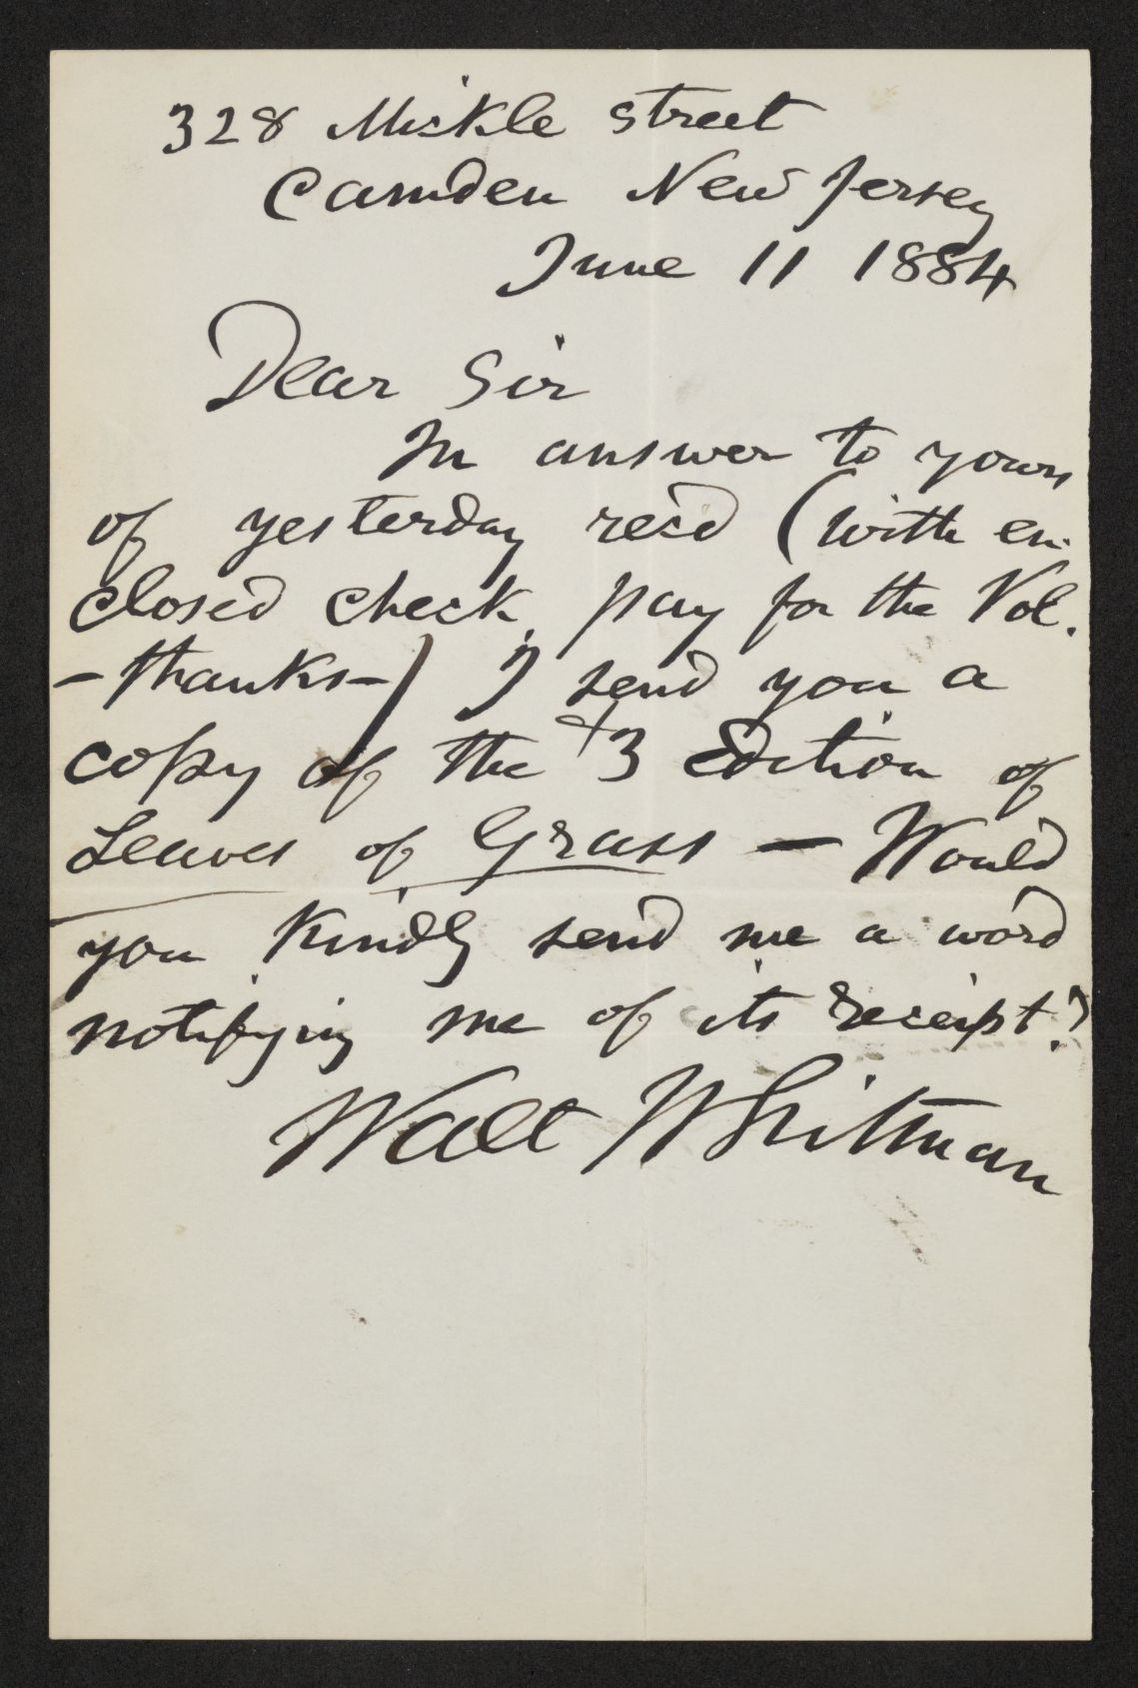 328 Mickle street
Camden New Jersey
June 11 1884
Dear Sir
In answer to yours
of yesterday rec'd (with en-
closed check, pay for the Vol.
— thanks—) I send you a
copy of the 3 Edition of
Leaves of Grass — Would
you kindly send me a word
notifying me of its receipt?
Walt Whitman